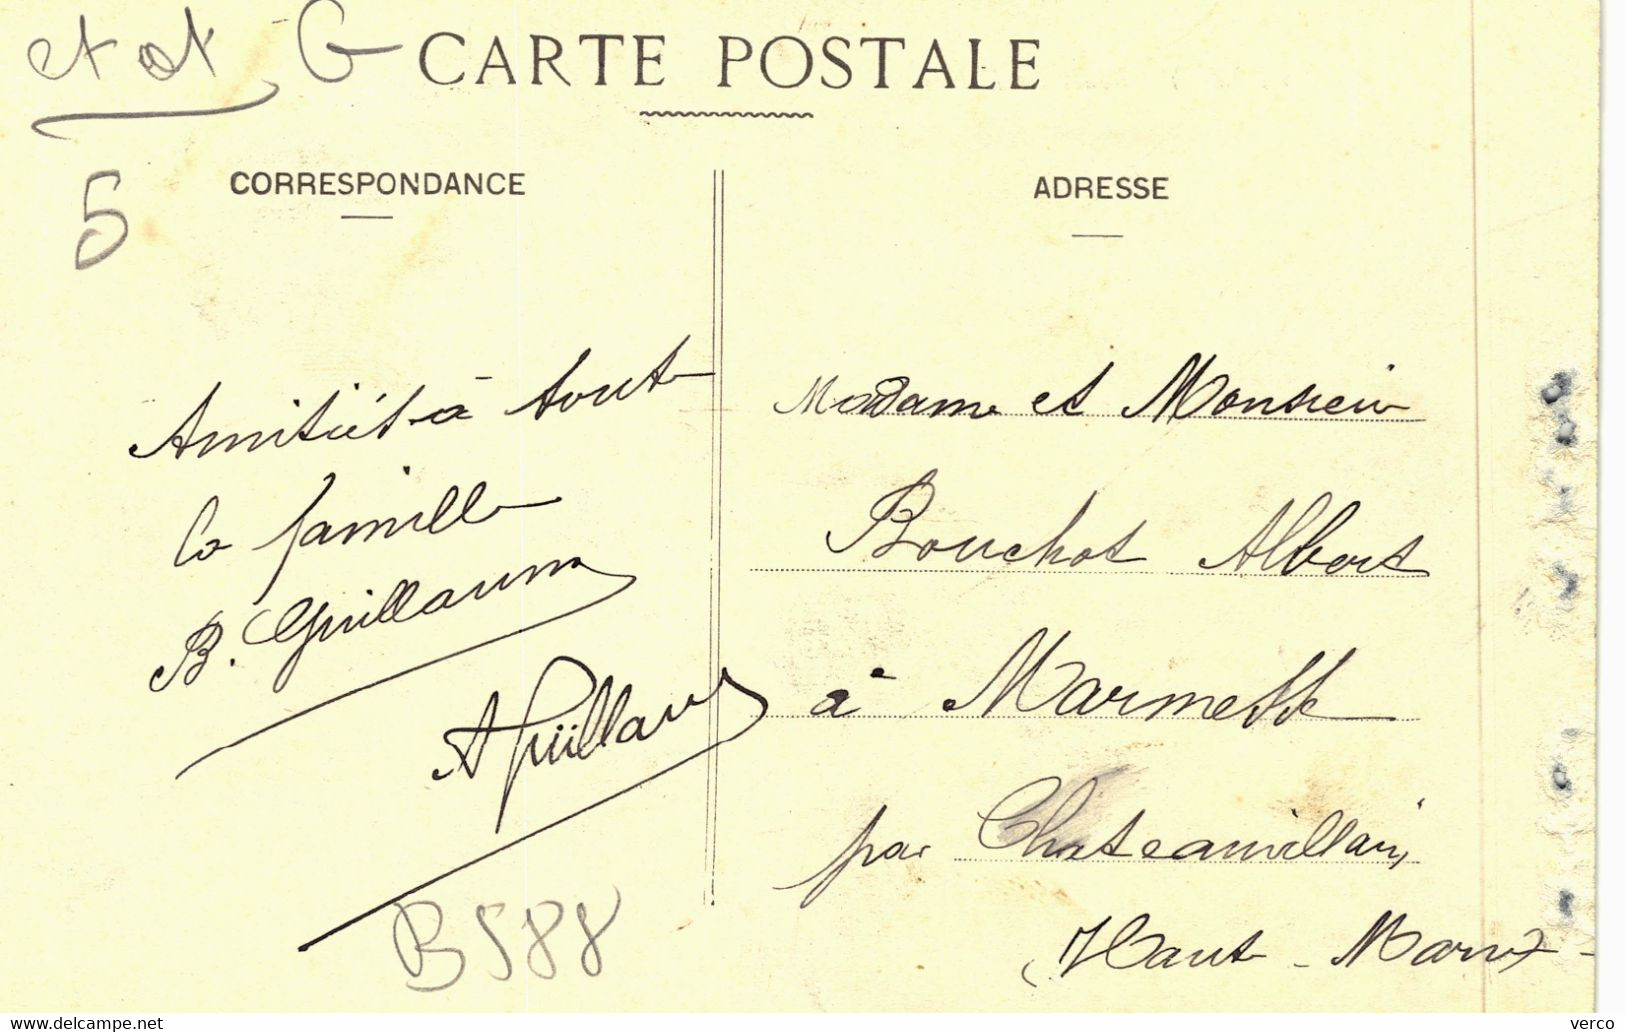 et ot G
CARTE POSTALE
5
CORRESPONDANCE
ADRESSE
Amitiés à toute
la famille
B. Guillaume
A Guillaume
B588
Madame et Monsieur
Bouchot Albert
à Marmesse
par Chateauvillain,
(Haute-Marne
www.delcampe.net
verco